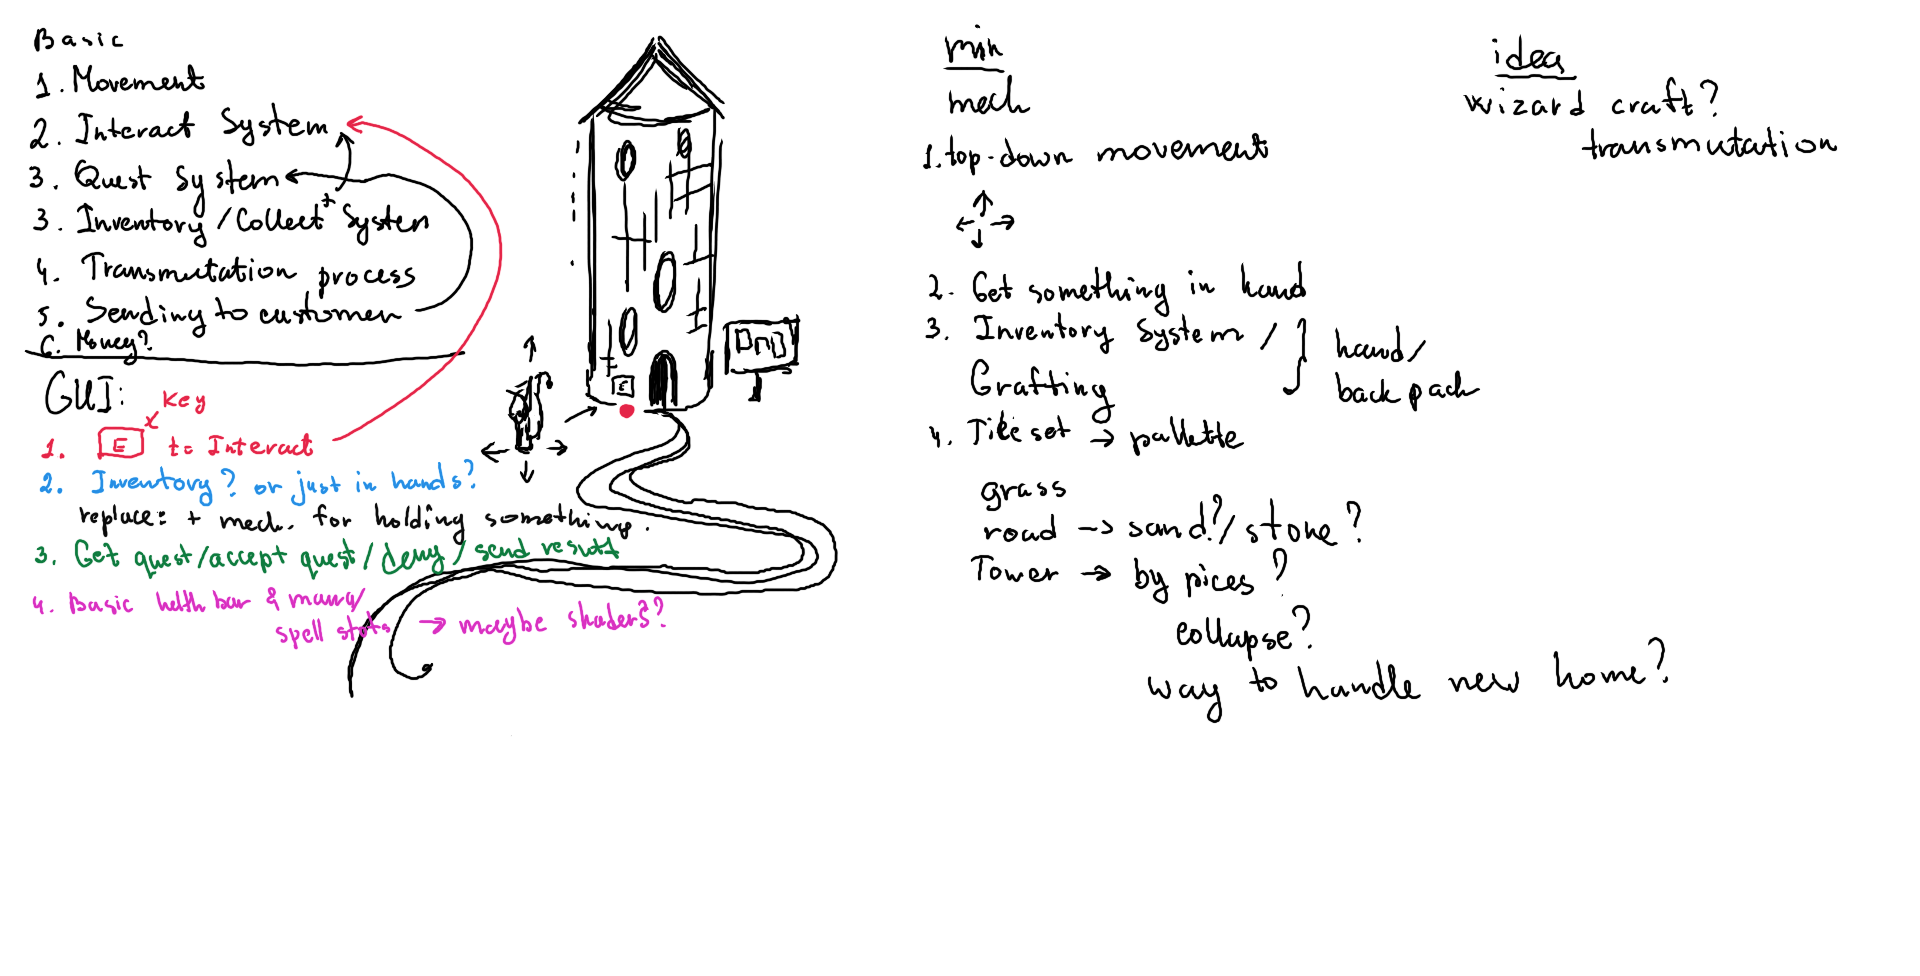 Basic
1. Movement
2. Interact System
3. Quest System
3. Inventory / Collect + System
4. Transmutation process
5. Sending to customer
6. Money?
GUI:
Key
1. E to Interact
2. Inventory? or just in hands?
replace: + mech. for holding something.
3. Get quest/accept quest/deny/send result
4. Basic helth bar & mana/
spell slots → maybe shaders?
E
min
mech
1. top-down movement
2. Get something in hand
3. Inventory System /
Grafting
hand/
back pack
4. Tile set → pallette
grass
road → sand?/stone?
Tower → by pices?
collapse?
way to handle new home?
idea
wizard craft?
transmutation